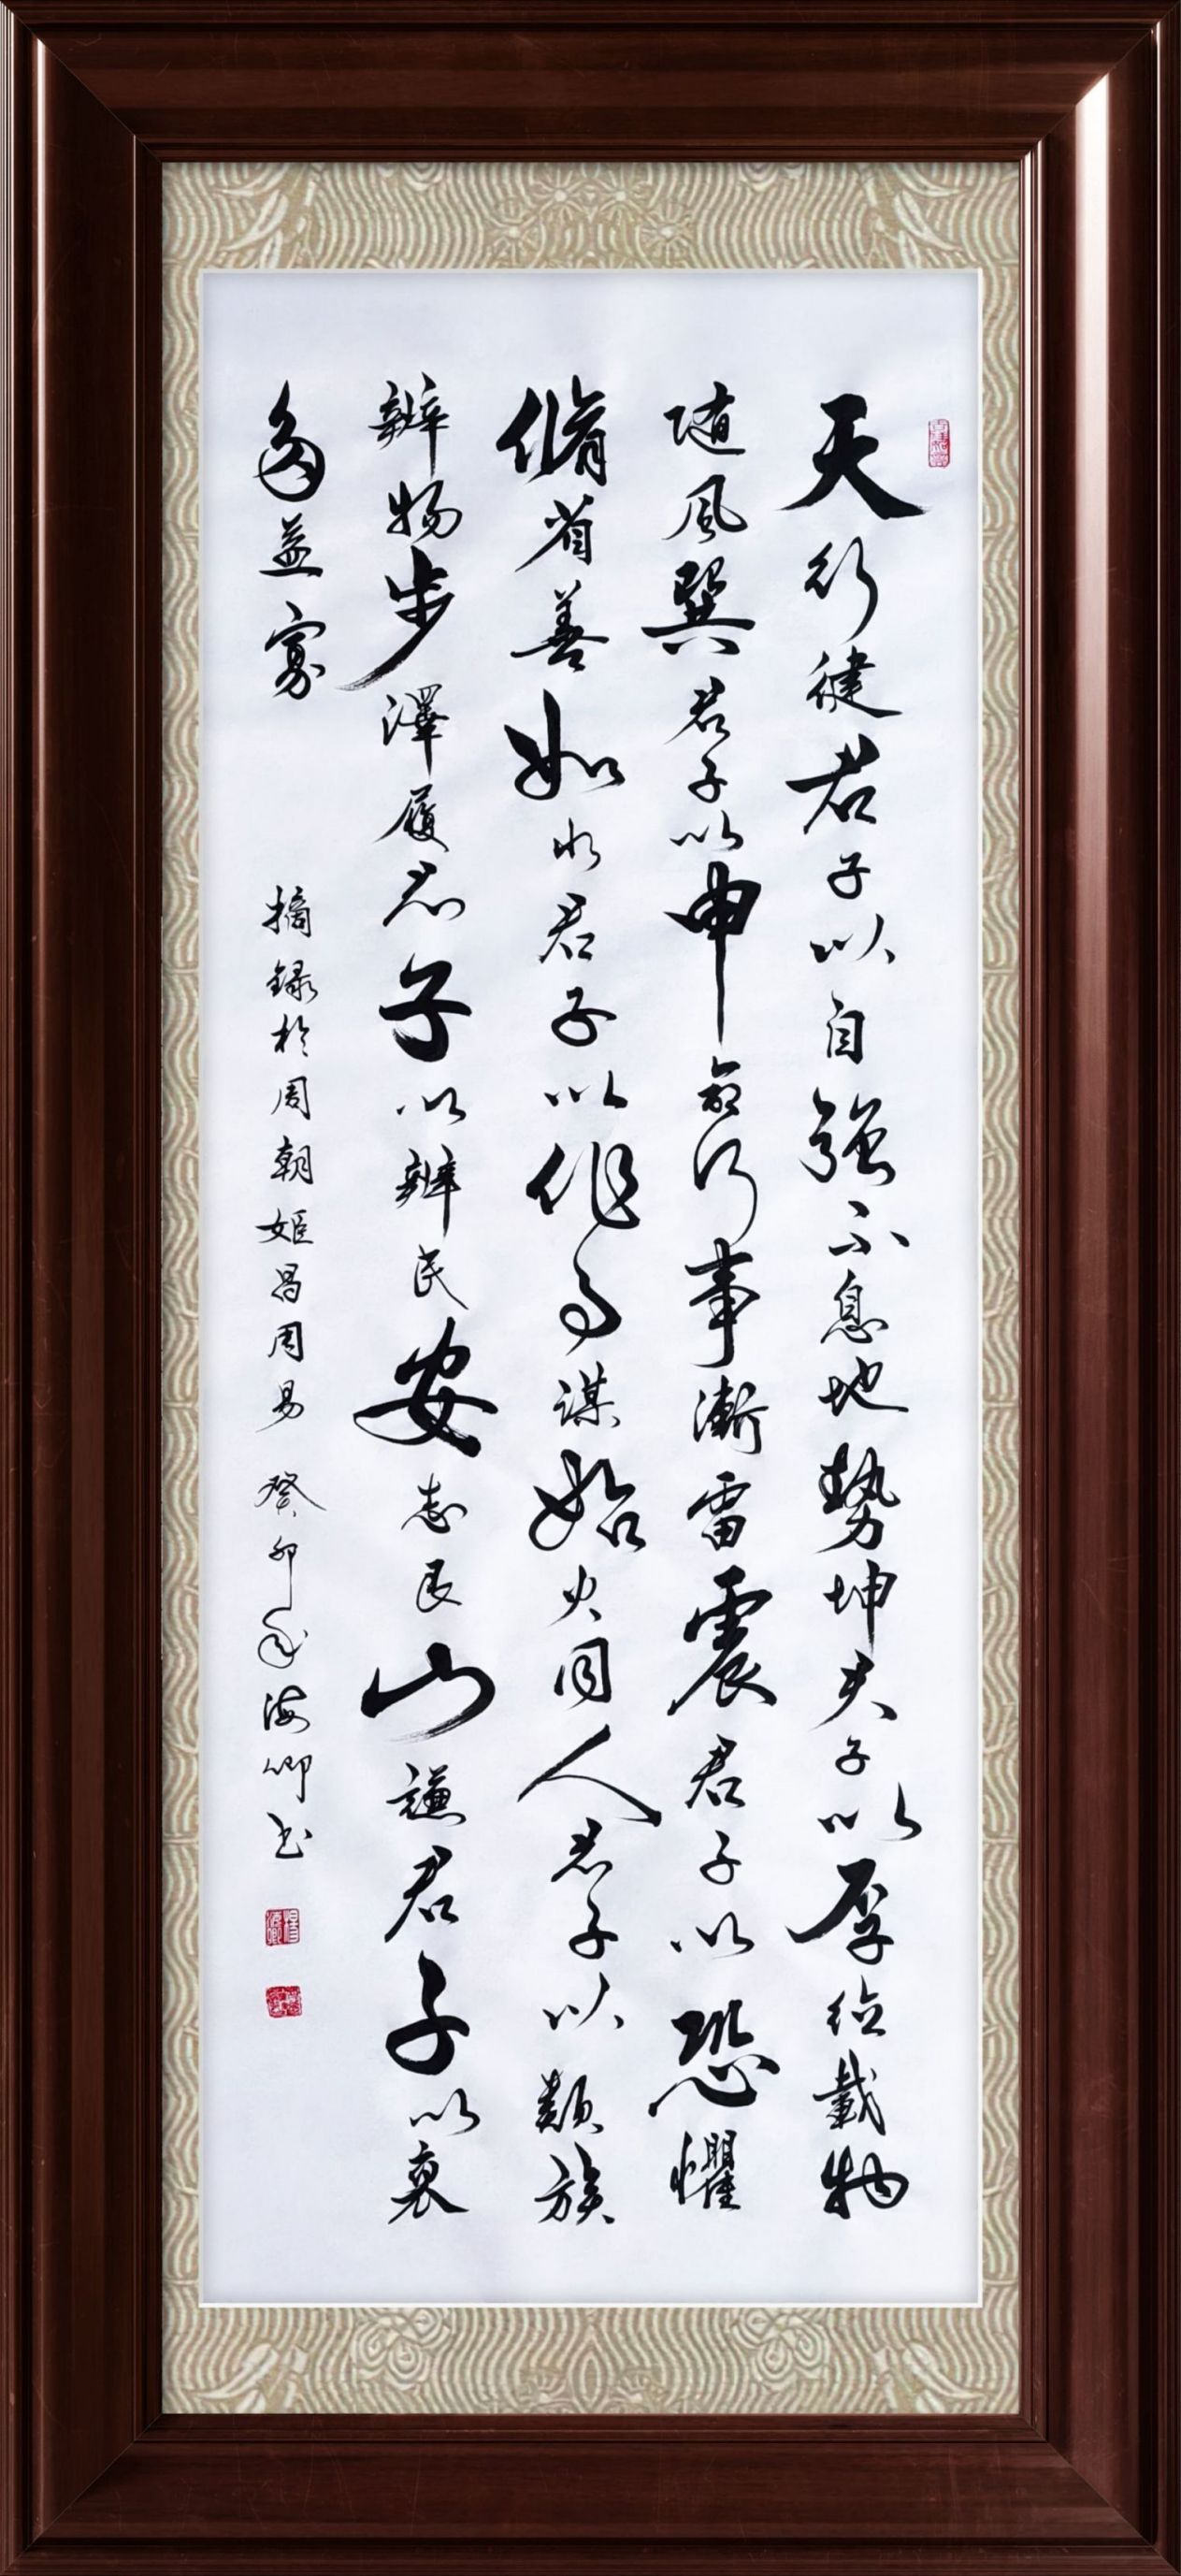 天行健君子以自強不息地勢坤夫子以厚德載物
随風巽君子以申命行事漸雷震君子以恐懼
脩省善如水君子以作事謀始火同人君子以類族
辨物步澤履君子以辨民安志艮山謙君子以裒
多益寡
摘録於周朝姬昌周易 癸卯年海卿书